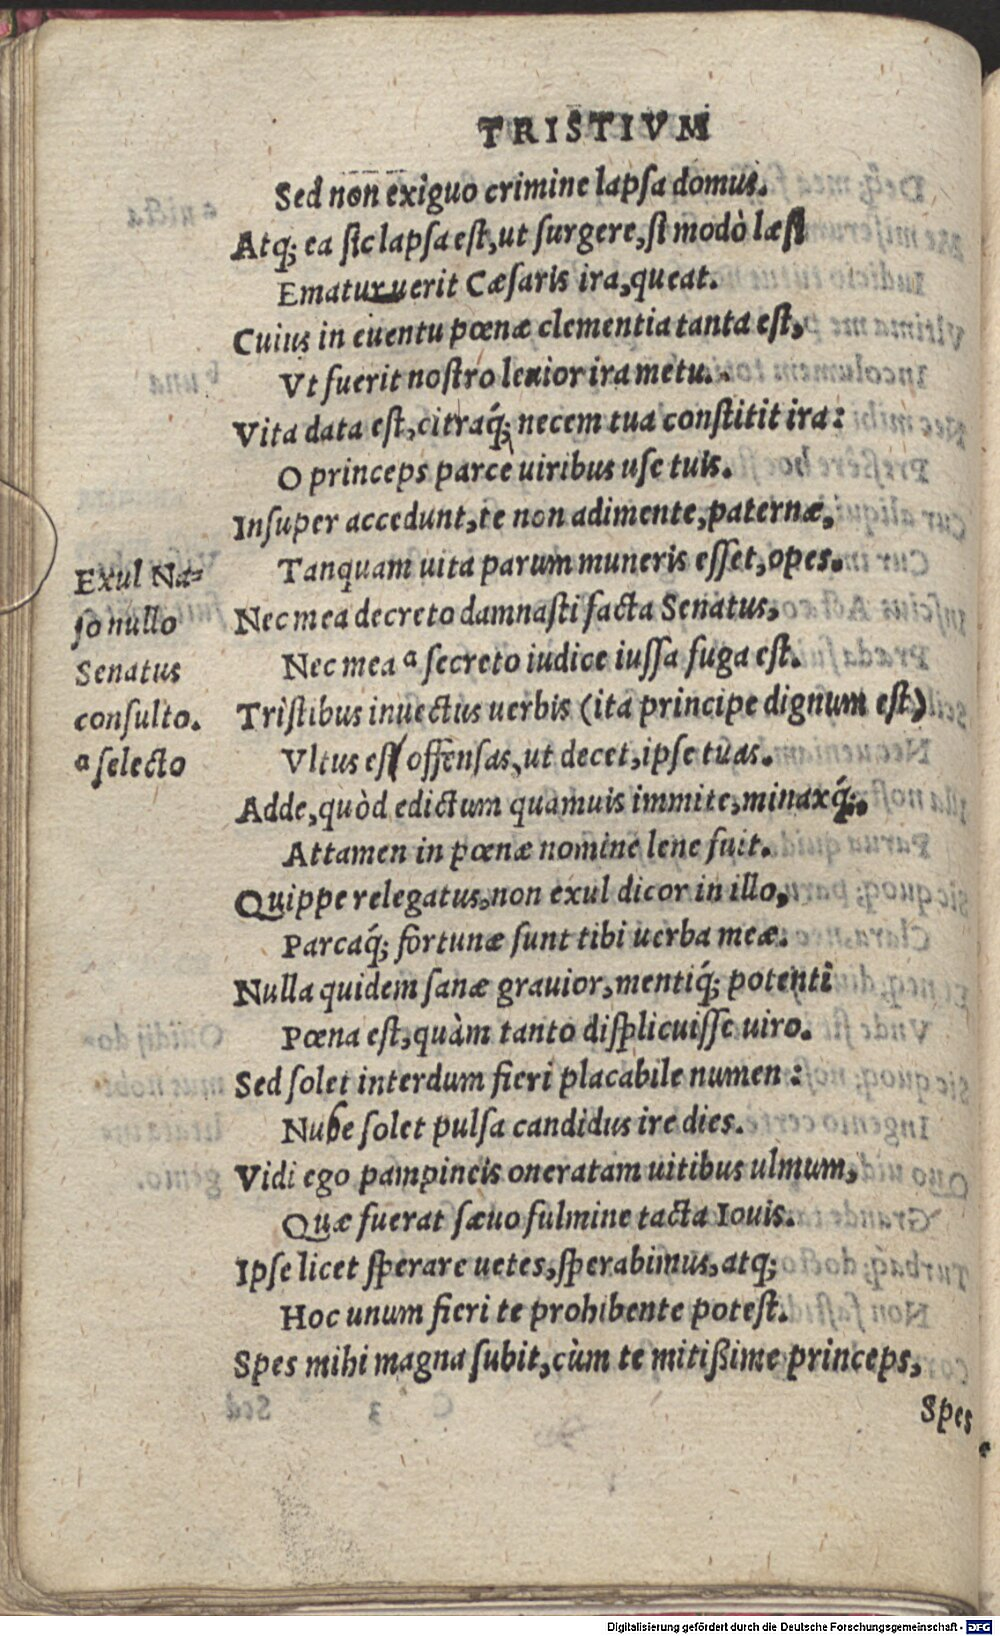 TRISTIVM
Sed non exiguo crimine lapsa domus.
Atq; ea sic lapsa est, ut surgere, si modò læsi
Ematuruerit Cæsaris ira, queat.
Cuius in euentu pœnæ clementia tanta est,
Vt fuerit nostro lenior ira metu.
Vita data est, citraq́; necem tua constitit ira:
O princeps parce uiribus use tuis.
Insuper accedunt, te non adimente, paternæ,
Tanquam uita parum muneris esset, opes.
Nec mea decreto damnasti facta Senatus,
Nec mea ᵃ secreto iudice iussa fuga est.
Tristibus inuectus uerbis (ita principe dignum est)
Vltus es offensas, ut decet, ipse tuas.
Adde, quòd edictum quamuis immite, minaxq́;,
Attamen in pœnæ nomine lene fuit.
Quippe relegatus, non exul dicor in illo,
Parcaq́; fortunæ sunt tibi uerba meæ.
Nulla quidem sanæ grauior, mentiq́; potenti
Pœna est, quàm tanto displicuisse uiro.
Sed solet interdum fieri placabile numen:
Nube solet pulsa candidus ire dies.
Vidi ego pampineis oneratam uitibus ulmum,
Quæ fuerat sæuo fulmine tacta Iouis.
Ipse licet sperare uetes, sperabimus, atq;
Hoc unum fieri te prohibente potest.
Spes mihi magna subit, cùm te mitißime princeps,
Spes
Exul Na=
so nullo
Senatus
consulto.
ᵃ selecto
Digitalisierung gefördert durch die Deutsche Forschungsgemeinschaft - DFG